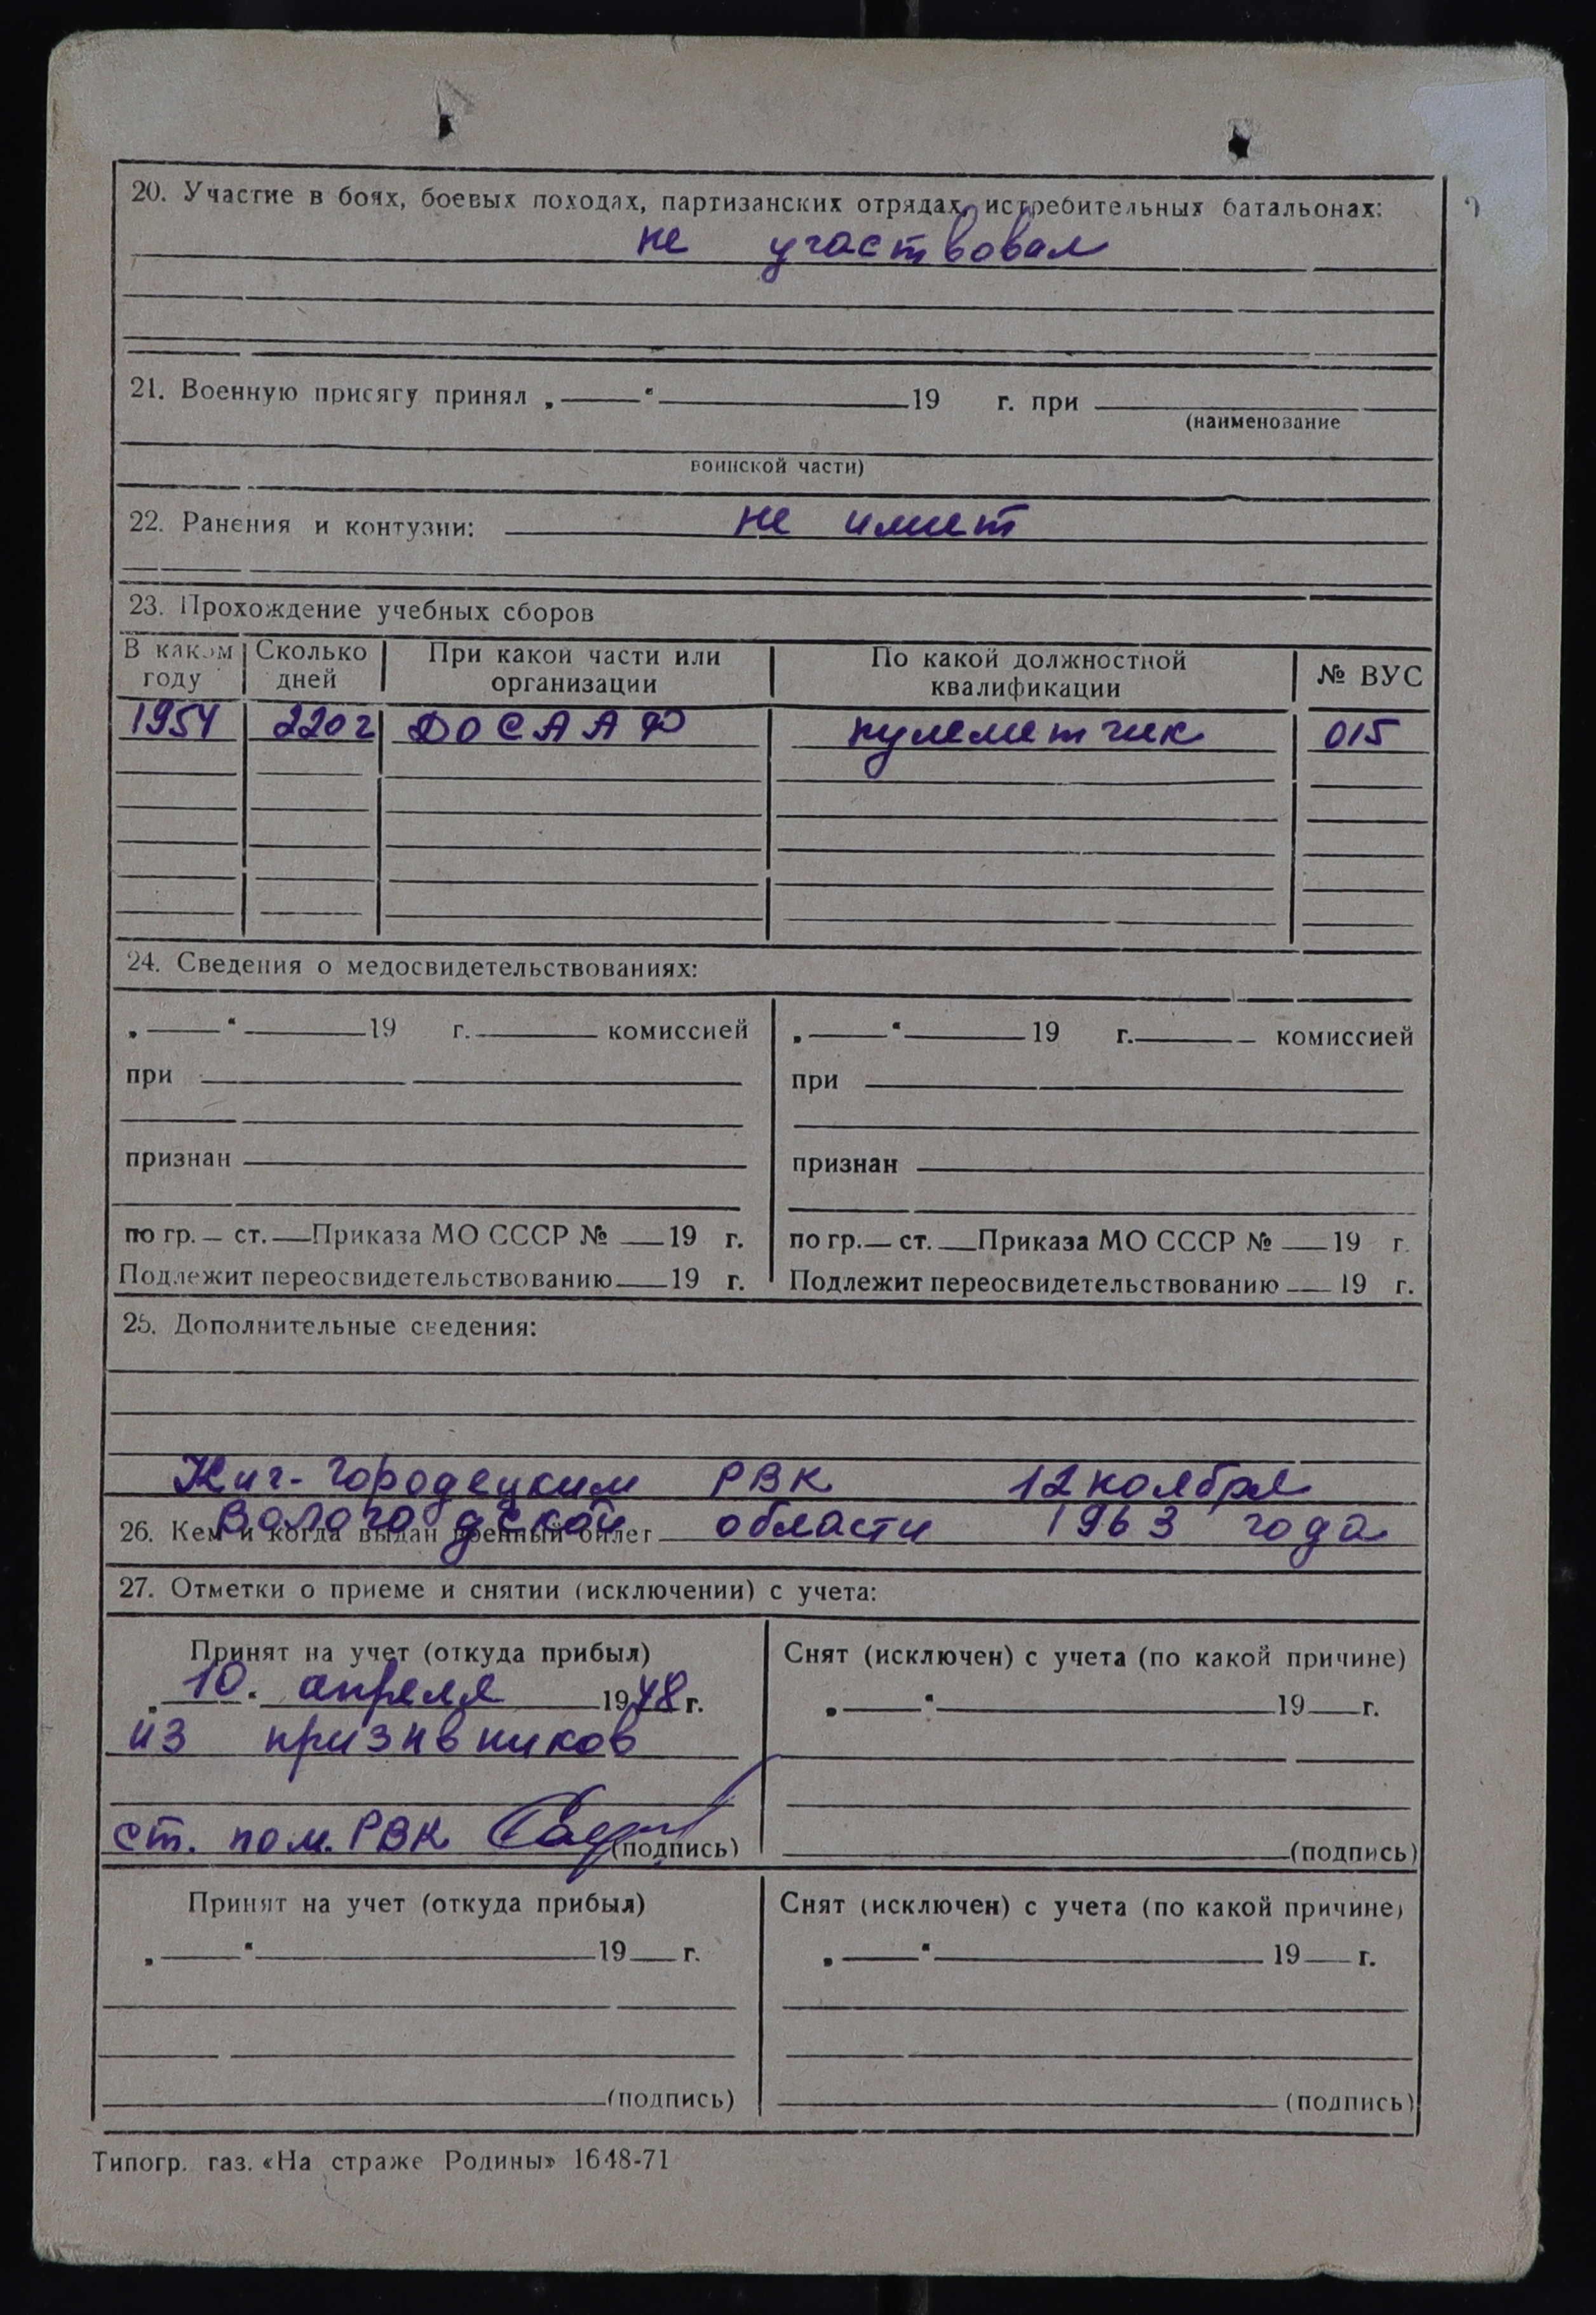 20. Участие в боях, боевых походах, партизанских отрядах, истребительных батальонах:
не участвовал
21. Военную присягу принял „ — “ — 19 г. при
(наименование
воинской части)
22. Ранения и контузии: не имеет
23. Прохождение учебных сборов
В каком году Сколько дней При какой части или организации По какой должностной квалификации № ВУС
1954 220 г ДОСААФ пулеметчик 015
24. Сведения о медосвидетельствованиях:
„ — “ — 19 г. — комиссией „ — “ — 19 г. — комиссией
при при
признан признан
по гр. — ст. — Приказа МО СССР № — 19 г. по гр. — ст. — Приказа МО СССР № — 19 г.
Подлежит переосвидетельствованию — 19 г. Подлежит переосвидетельствованию — 19 г.
25. Дополнительные сведения:
Кич-Городецким РВК 12 ноября
26. Кем и когда выдан военный билет Вологодской области 1963 года
27. Отметки о приеме и снятии (исключении) с учета:
Принят на учет (откуда прибыл) Снят (исключен) с учета (по какой причине)
„ 10. апреля 1948 г. „ — “ — 19 — г.
из призывников
ст. пом. РВК (подпись) (подпись)
Принят на учет (откуда прибыл) Снят (исключен) с учета (по какой причине)
„ — “ — 19 — г. „ — “ — 19 — г.
(подпись) (подпись)
Типогр. газ. «На страже Родины» 1648-71